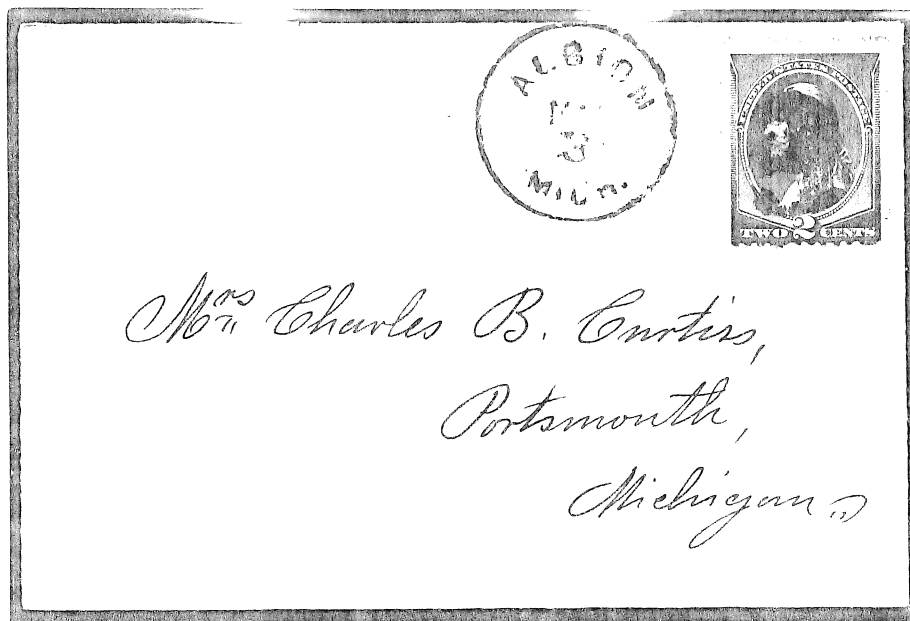 ALBION
3
MICH.
TWO 2 CENTS
Mrs Charles B. Curtiss,
Portsmouth,
Michigan